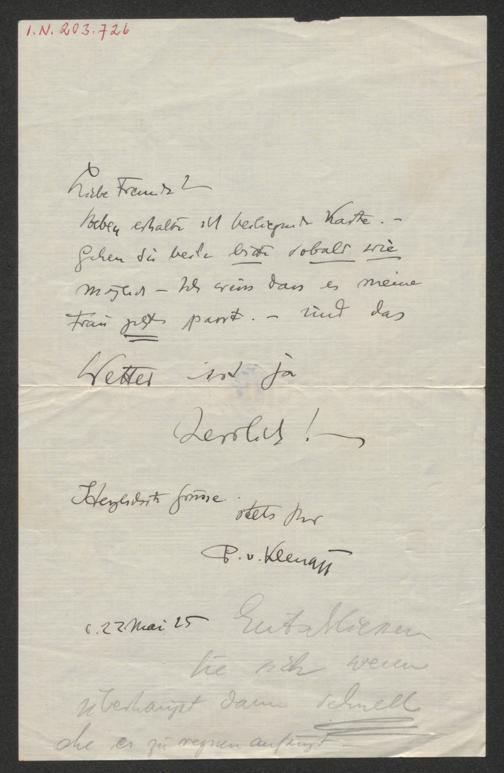 I.N. 203.726
Liebe Freunde!
soeben erhalte ich beiliegende Karte. –
Gehen Sie beide bitte sobald wie
möglich – Ich weiss dass es meine
Frau jetzt passt. – und das
Wetter ist ja
herrlich! –
Herzlichste Grüsse
stets Ihr
P. v. Klenau
22 Mai 25
Entschliessen
Sie sich wenn
überhaupt dann schnell
ehe es zu regnen anfängt –